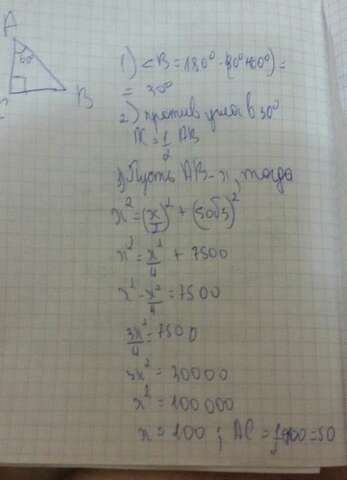 A
60°
B
1) <B = 180° - (90°+60°) =
= 30°
2) против угла в 30°
AC = 1/2 AB
3) Пусть AB - x, тогда
x² = (x/2)² + (50√3)²
x² = x²/4 + 7500
x² - x²/4 = 7500
3x²/4 = 7500
3x² = 30000
x² = 100000
x = 100 ; AC = =50